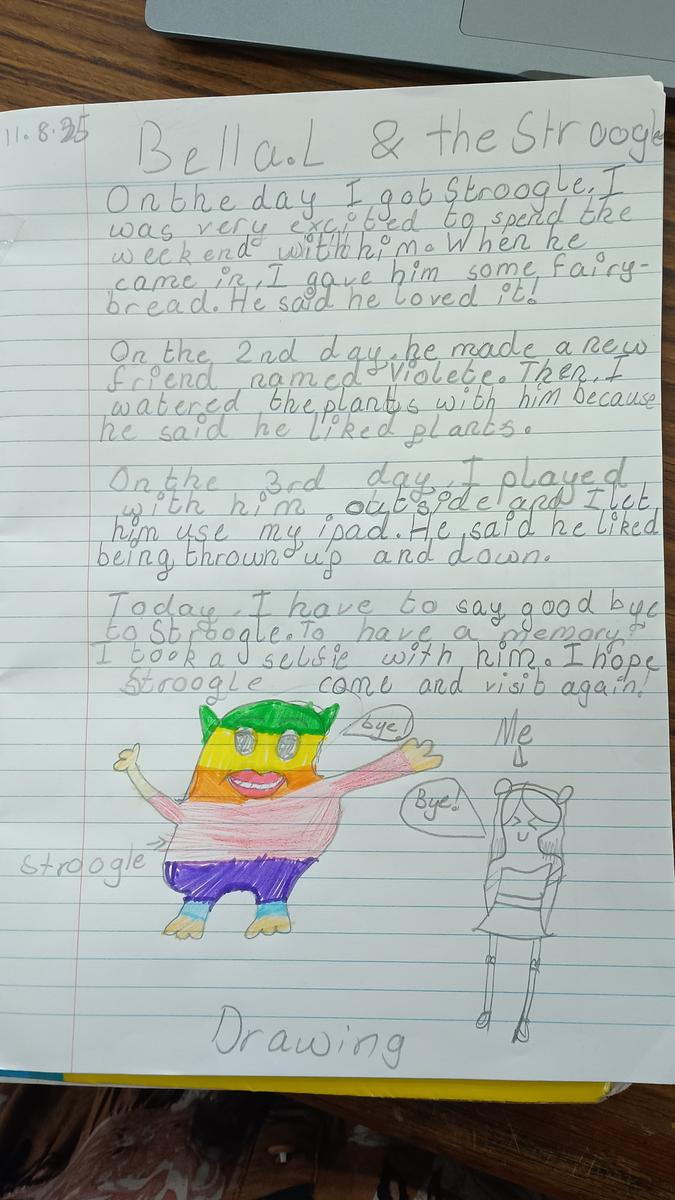 11.8.25
Bella.L & the Stroogle
On the day I got Stroogle, I
was very excited to spend the
weekend with him. When he
came in, I gave him some fairy-
bread. He said he loved it!
On the 2nd day, he made a new
friend named Violete. Then, I
watered the plants with him because
he said he liked plants.
On the 3rd day, I played
with him outside and I let
him use my ipad. He said he liked
being thrown up and down.
Today, I have to say good bye
to Stroogle. To have a memory,
I took a selfie with him. I hope
Stroogle come and visib again!
bye!
Me
Bye!
Stroogle
Drawing